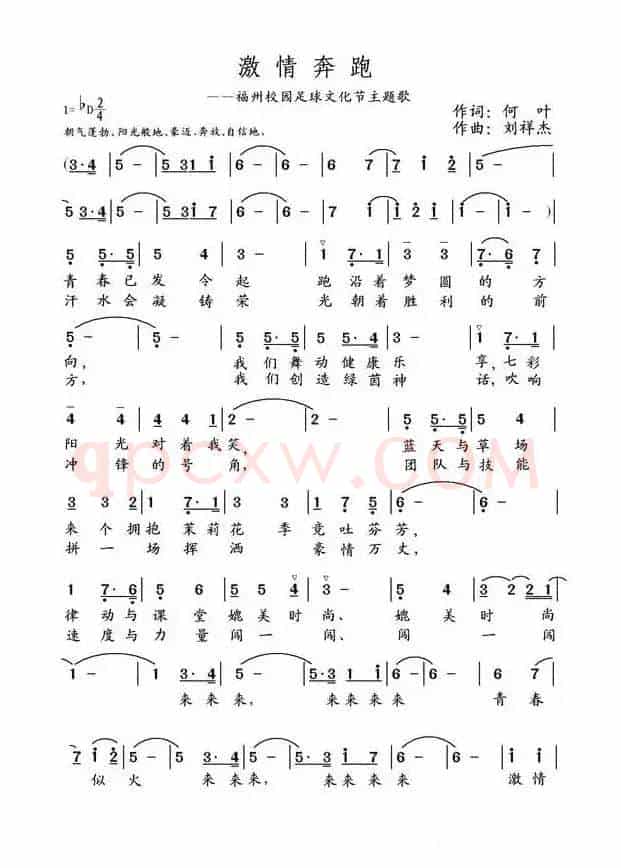 激情奔跑
——福州校园足球文化节主题歌
1=♭D 2/4
作词：何 叶
朝气蓬勃、阳光般地、豪迈、奔放、自信地、
作曲：刘祥杰
青春已发令起 跑沿着梦圆的方
汗水会凝铸荣 光朝着胜利的前
向， 我们舞动健康乐 享，七彩
方， 我们创造绿茵神 话，吹响
阳光对着我笑， 蓝天与草场
冲锋的号角， 团队与技能
qpcxw.COM
来个拥抱茉莉花季竞吐芬芳，
拼一场挥洒 豪情万丈，
律动与课堂媲美时尚、 媲美时尚
速度与力量闯一闯、 闯一闯
来来来， 来来来来 青春
似火 来来来， 来来来来 激情